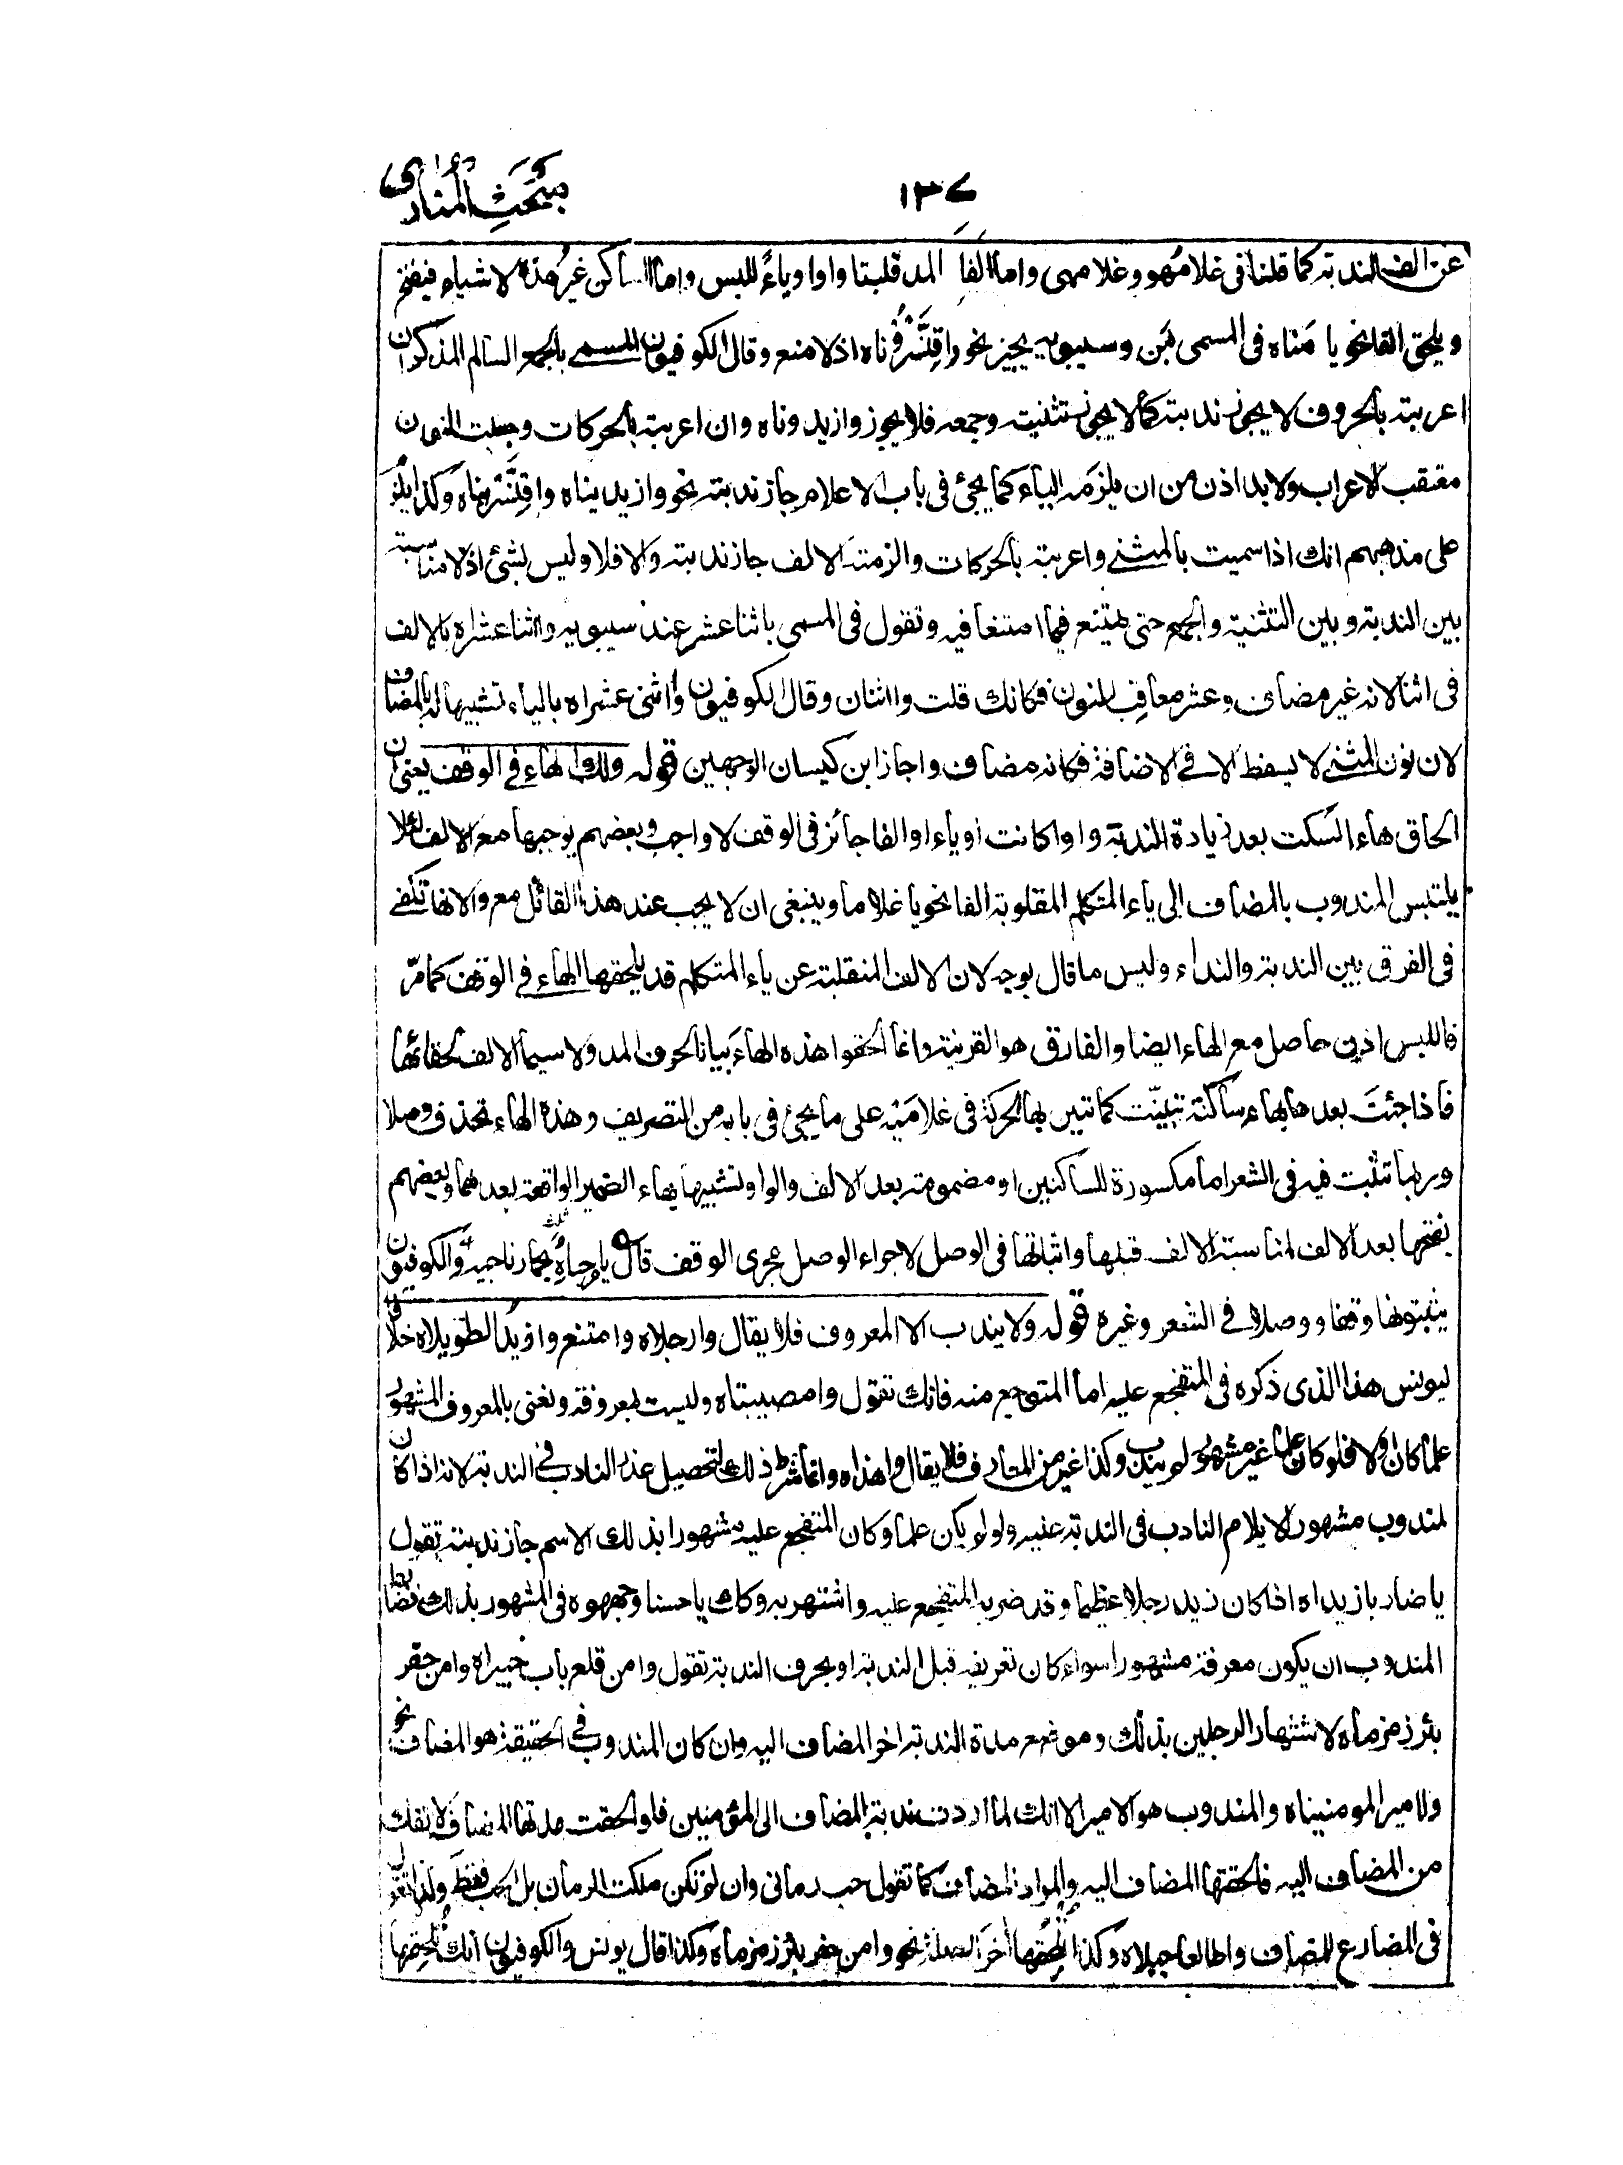 مبحث المنادى
١٣٧
عن الف الندبة كما قلنا فى غلامهوه وغلامهى واما الفا المد قلبتا واوا وياءً للبس واما الساكن غير هذه الاشياء فيفتح
ويلحق الفا نحو يا مناه فى المسمى بمن وسيبويه يجيز نحو واقنسروناه اذ لا منع وقال الكوفيون المسمى بالجمع السالم المذكر ان
اعربته بالحروف لا يجوز ندبته كما لا يجوز تثنيته وجمعه فلا يجوز وازيدوناه وان اعربته بالحركات وجعلت النون
معتقب الاعراب ولا بد اذن من ان يلزمه الياء كما يجئ فى باب الاعلام جاز ندبته نحو وازيديناه واقنسريناه وكذا يلزم
على مذهبهم انك اذا سميت بالمثنى واعربته بالحركات والزمته الالف جاز ندبته والا فلا وليس بشئ اذ لا مناسبة
بين الندبة وبين التثنية والجمع حتى يمتنع فيما امتنعا فيه وتقول فى المسمى باثنا عشر عند سيبويه واثنا عشراه بالالف
فى اثنا لانه غير مضاف وعشر معاقب للنون فكانك قلت وا اثنان وقال الكوفيون واثنى عشراه بالياء تشبيها له بالمضاف
لان نون المثنى لا يسقط الا فى الاضافة فكانه مضاف واجاز ابن كيسان الوجهين قوله ولك الهاء فى الوقف يعنى ان
الحاق هاء السكت بعد زيادة الندبة واوا كانت او ياء او الفا جائز فى الوقف لا واجب وبعضهم يوجبها مع الالف لئلا
يلتبس المندوب بالمضاف الى ياء المتكلم المقلوبة الفا نحو يا غلاما وينبغى ان لا يجب عند هذا القائل مع وا لانها تكفى
فى الفرق بين الندبة والنداء وليس ما قال بوجه لان الالف المنقلبة عن ياء المتكلم قد يلحقها الهاء فى الوقف كما مرّ
فاللبس اذن حاصل مع الهاء ايضا والفارق هو القرينة وانما الحقوا هذه الهاء بيانا لحرف المد ولا سيما الالف لخفائها
فاذا جئت بعدها بهاء ساكنة تبينت كما تبين بها الحركة فى غلاميه على ما يجئ فى بابه من التصريف وهذه الهاء تحذف وصلا
وربما تثبت فيه فى الشعر اما مكسورة للساكنين او مضمومة بعد الالف والواو تشبيها بهاء الضمير الواقعة بعدهما وبعضهم
يفتحها بعد الالف لمناسبة الالف قبلها واثباتها فى الوصل لاجراء الوصل مجرى الوقف قال يا مرحباه بحمار ناجيه والكوفيون
يثبتونها وقفا ووصلا فى الشعر وغيره قوله ولا يندب الا المعروف فلا يقال وا رجلاه وامتنع وازيد الطويلاه خلافا
ليونس هذا الذى ذكره فى المتفجع عليه اما المتوجع منه فانك تقول وامصيبتاه وليست بمعروفة ونعنى بالمعروف المشهور
علما كان اولا فلو كان علما غير مشهور لم يندب وكذا غيره من المعارف فلا يقال واهذاه وانما شرط ذلك لتحصيل عذر النادب فى الندبة لانه اذا كان
لمندوب مشهورا لا يلام النادب فى الندبة عنيه ولو لم يكن علما وكان المتفجع عليه مشهورا بذلك الاسم جاز ندبته تقول
يا ضاربا زيداه اذا كان زيد رجلا عظيما وقد ضربه المتفجع عليه واشتهر به وكذلك يا حسنا وجهوه فى المشهور بذلك فضابط
المندوب ان يكون معرفة مشهورا سواء كان تعريفه قبل الندبة او بحرف الندبة تقول وامن قلع باب خيبراه وامن حفر
بئر زمزماه لاشتهار الرجلين بذلك وموضع مدة الندبة اخر المضاف اليه وان كان المندوب فى الحقيقة هو المضاف نحو
وا امير المومنيناه والمندوب هو الامير الا انك لما اردت ندبة المضاف الى المؤمنين فلو الحقت مدتها المضاف لانفك
من المضاف اليه فالحقتها المضاف اليه والمراد المضاف كما تقول حب رمانى وان لم تكن ملكت الرمان بل الحب فقط وكذا تقول
فى المضارع للمضاف واطالعا جبلاه وكذا تلحقها اخر الصلة نحو وامن حفر بئر زمزماه وكذا قال يونس والكوفيون انك تلحقها